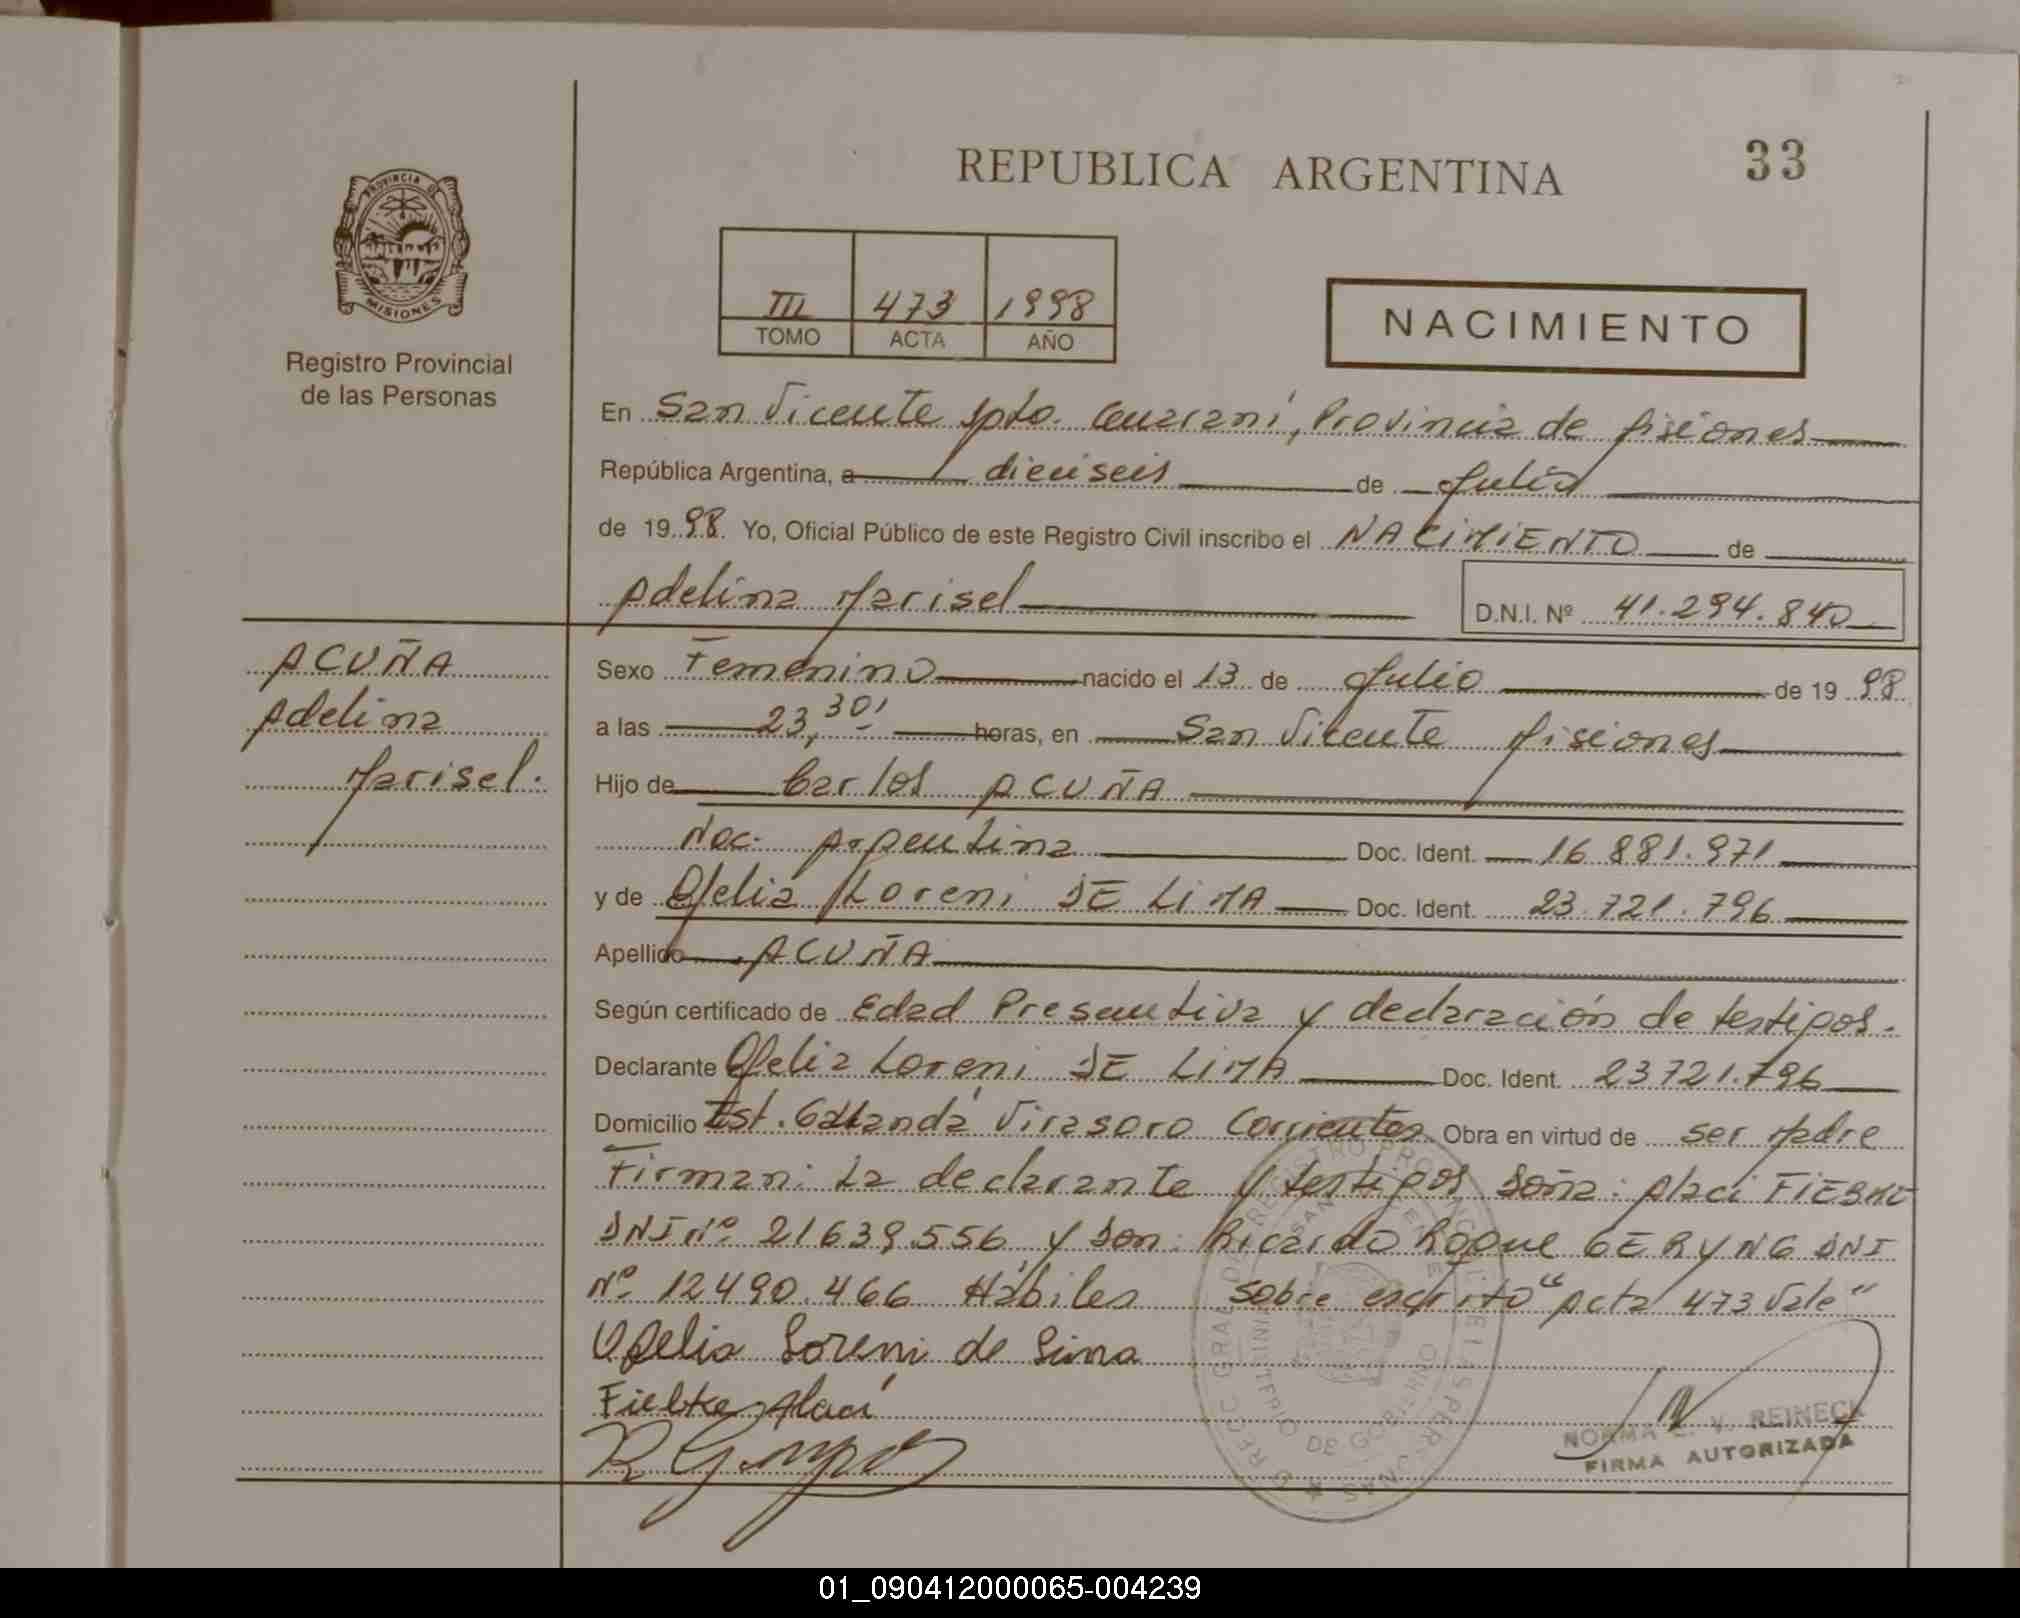 REPUBLICA ARGENTINA
33
PROVINCIA DE
MISIONES
Registro Provincial
de las Personas
III 473 1998
TOMO ACTA AÑO
NACIMIENTO
En San Vicente Dpto. Guaraní, Provincia de Misiones
República Argentina, a dieciseis de Julio
de 19 98 Yo, Oficial Público de este Registro Civil inscribo el NACIMIENTO de
Adelina Marisel
D.N.I. Nº 41.294.840
ACUÑA
Adelina
Marisel.
Sexo Femenino nacido el 13 de Julio de 19 98
a las 23,30 horas, en San Vicente Misiones
Hijo de Carlos ACUÑA
Nac. Argentina Doc. Ident. 16.881.971
y de Ofelia Loreni DE LIMA Doc. Ident. 23.721.796
Apellido ACUÑA
Según certificado de Edad Presuntiva y declaración de testigos.
Declarante Ofelia Loreni DE LIMA Doc. Ident. 23721.796
Domicilio Est. Virasoro Corrientes Obra en virtud de ser Madre
Firman: La declarante y testigos Doña: Alaci
DNI Nº 21639.556 y Don: Ricardo Roque GERYNG DNI
Nº 12490.466 Hábiles sobre escrito "Acta 473 Vale"
Ofelia Loreni de Lima
Fielke Alaci
NORMA REINECK
FIRMA AUTORIZADA
01_090412000065-004239